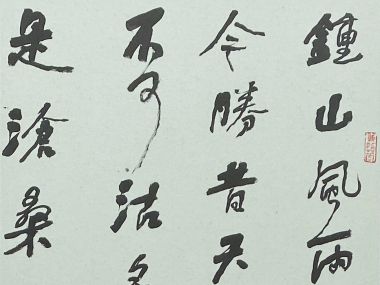 鍾山風雨
今勝昔天
不可沽名
是滄桑